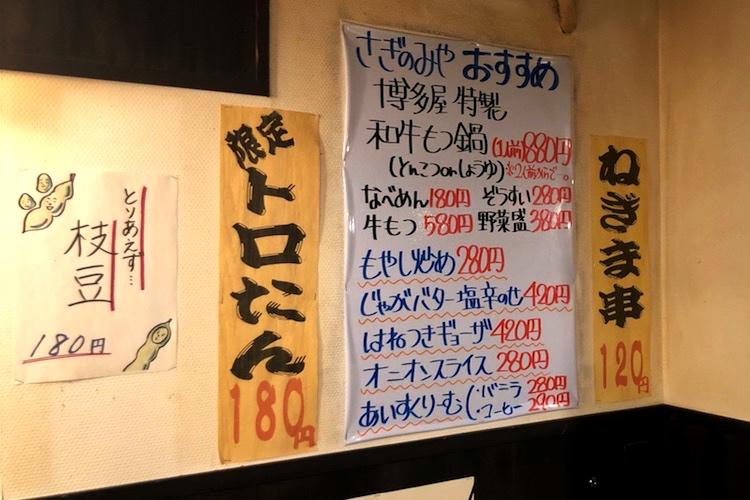 とりあえず…
枝豆
180円
限定
トロたん
180円
さぎのみや おすすめ
博多屋 特製
和牛もつ鍋 (1人前)880円
(とんこつorしょうゆ)※2人前からで〜。
なべめん180円 ぞうすい280円
牛もつ 580円 野菜盛380円
もやし炒め280円
じゃがバター塩辛のせ420円
はねつきギョーザ420円
オニオンスライス 280円
あいすくりーむ(・バニラ 280円
・コーヒー 290円
ねぎま串
120円